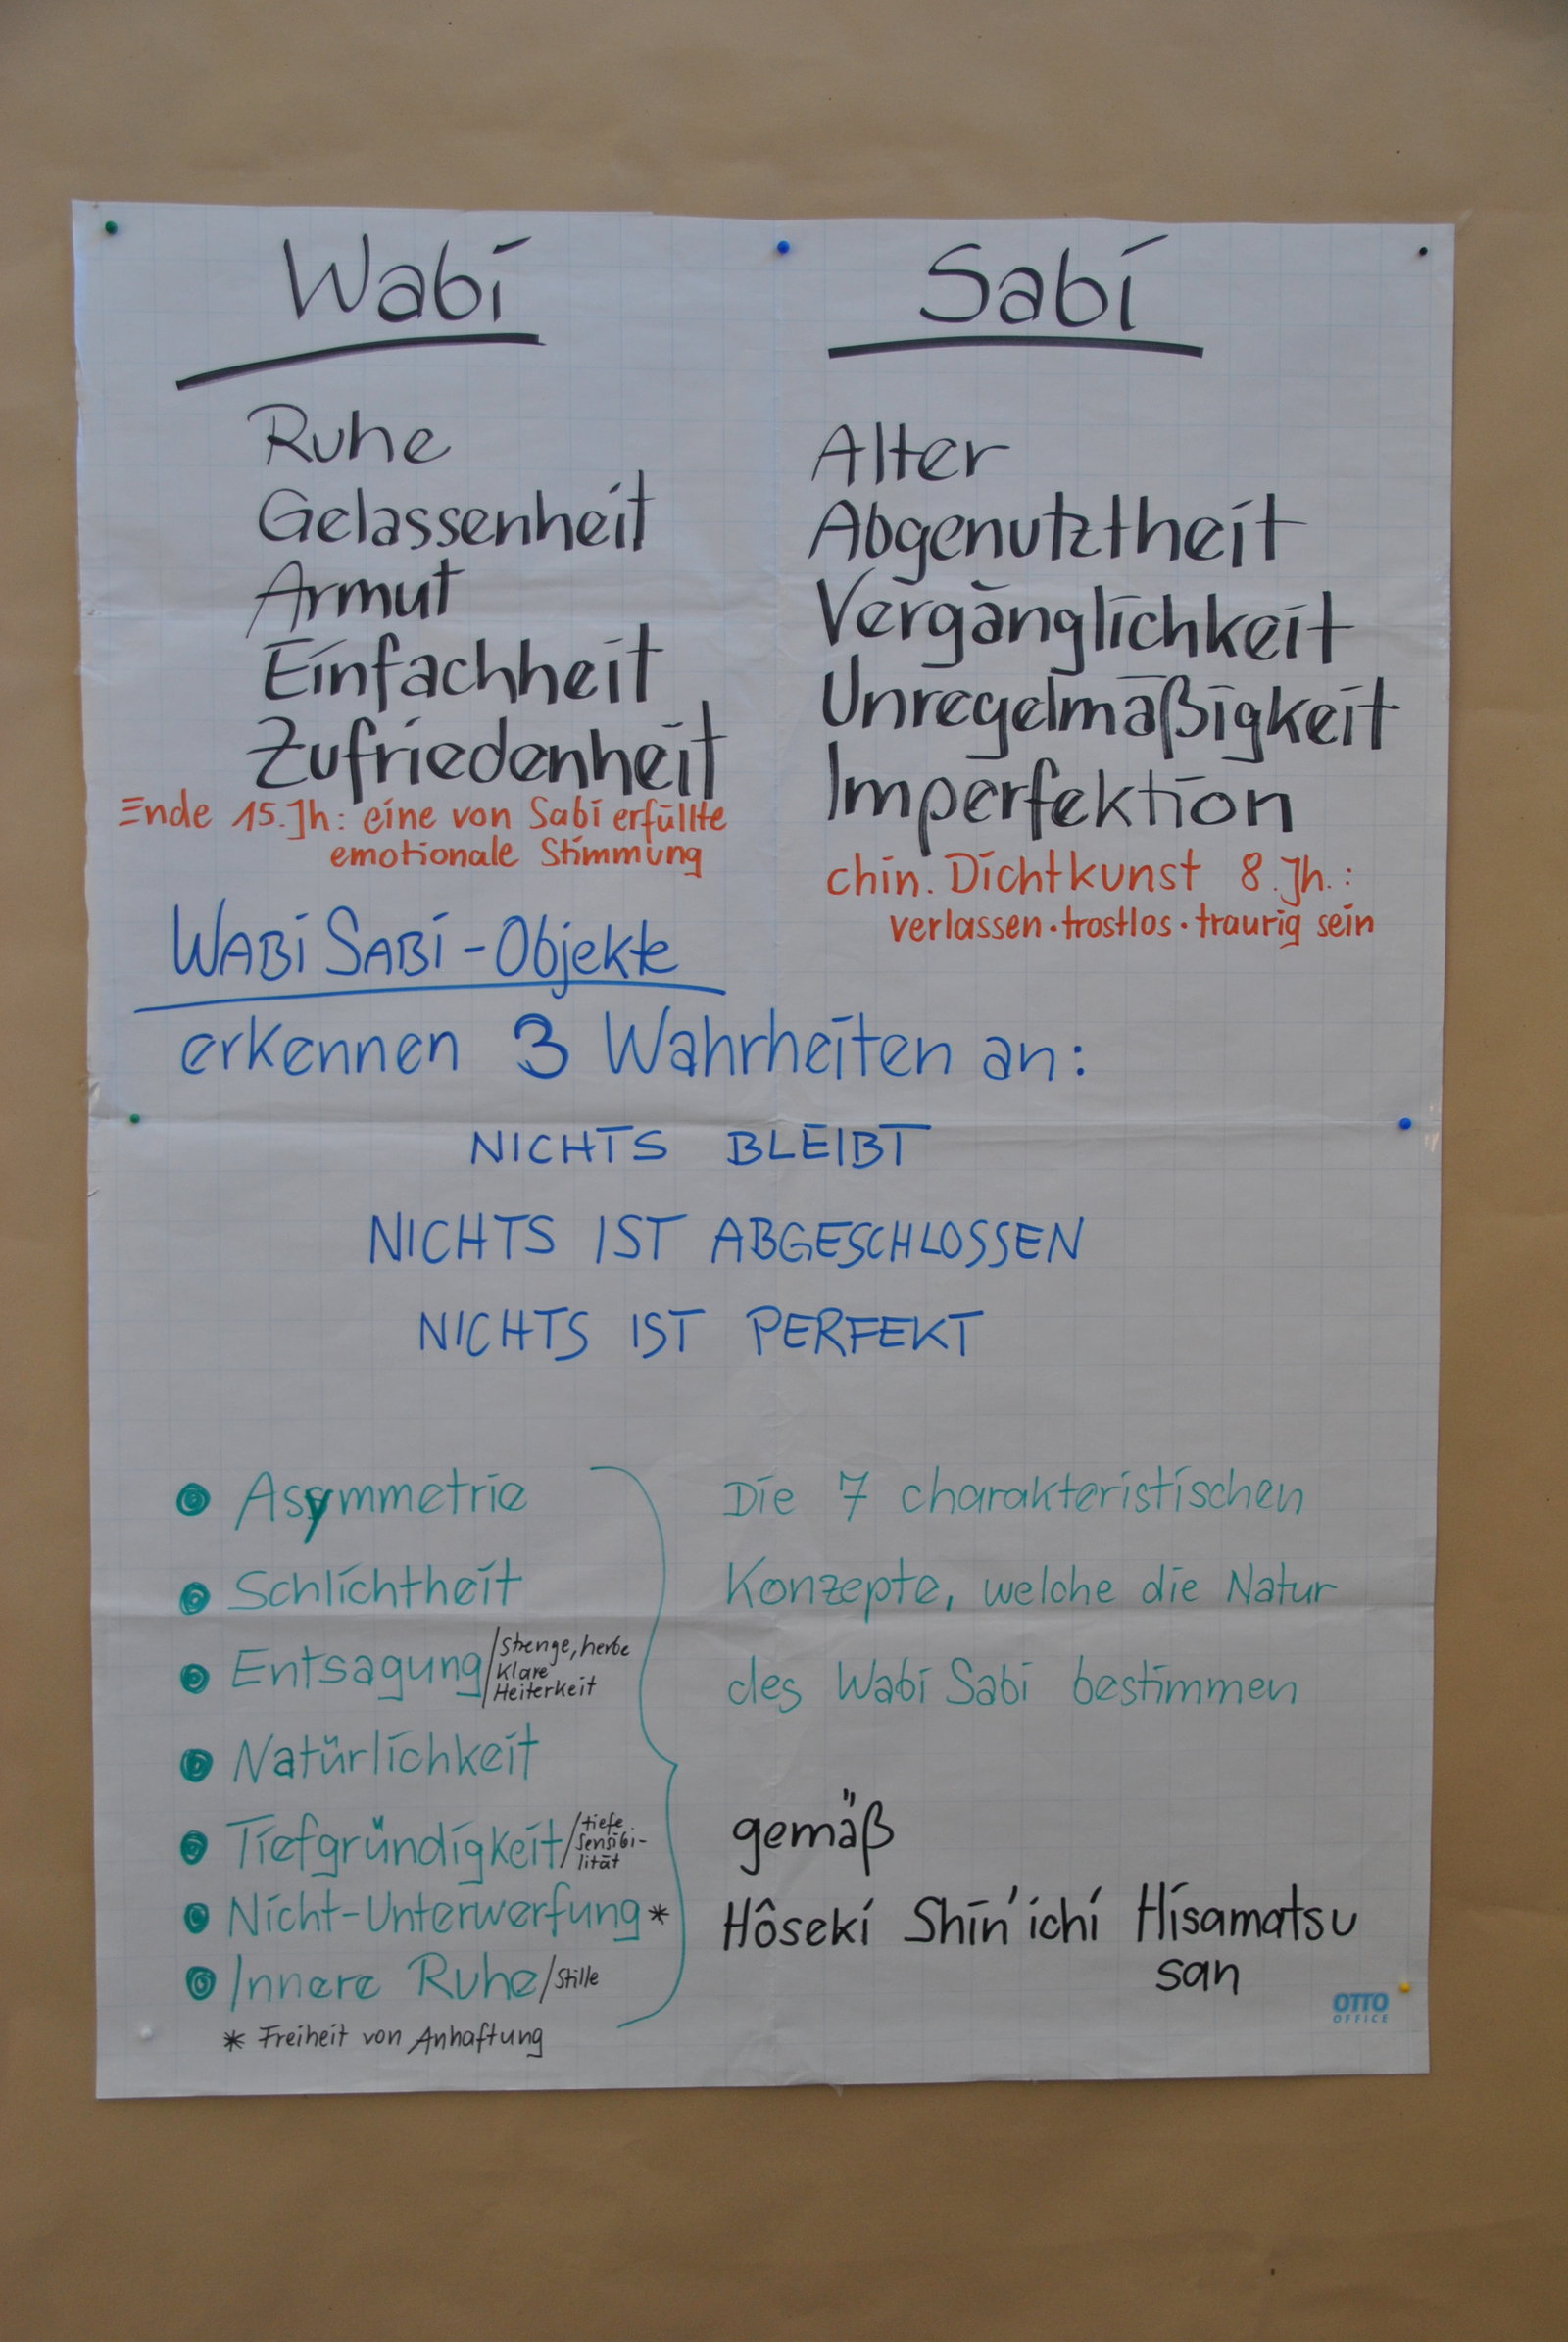 Wabi
Ruhe
Gelassenheit
Armut
Einfachheit
Zufriedenheit
Ende 15. Jh: eine von Sabi erfüllte
emotionale Stimmung
Sabi
Alter
Abgenutztheit
Vergänglichkeit
Unregelmäßigkeit
Imperfektion
chin. Dichtkunst 8. Jh.:
verlassen · trostlos · traurig sein
WABI SABI - Objekte
erkennen 3 Wahrheiten an:
NICHTS BLEIBT
NICHTS IST ABGESCHLOSSEN
NICHTS IST PERFEKT
Asymmetrie
Schlichtheit
Entsagung/strenge, herbe
klare
Heiterkeit
Natürlichkeit
Tiefgründigkeit/tiefe
Sensibi-
lität
Nicht-Unterwerfung*
Innere Ruhe/Stille
* Freiheit von Anhaftung
Die 7 charakteristischen
Konzepte, welche die Natur
des Wabi Sabi bestimmen
gemäß
Hôseki Shin'ichi Hisamatsu
san
OTTO
OFFICE